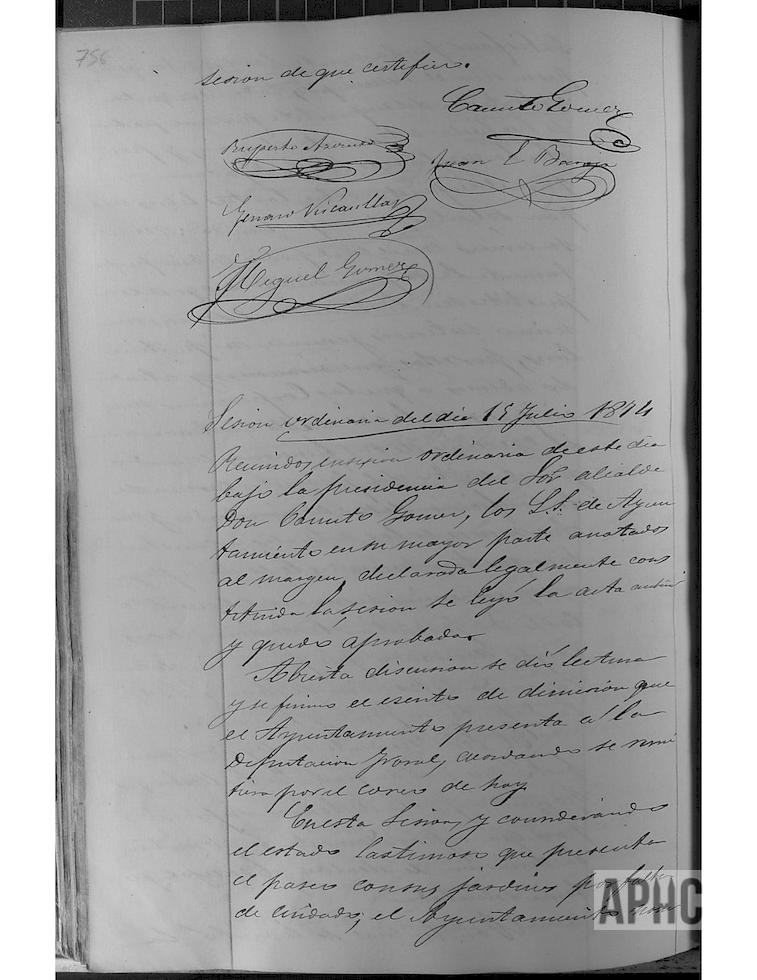 756
sesion de que certifico.
Canuto Gomez
Ruperto
Juan E Baraja
Genaro
Miguel Gomez
Sesion ordinaria del dia 15 Julio 1874
Reunidos en sesion ordinaria de este dia
bajo la presidencia del Sor alcalde
Don Canuto Gomez, los S.S. de Ayun
tamiento en su mayor parte anotados
al margen, declarada legalmente cons
tituida la sesion se leyó la acta anterior
y quedo aprobada
Abierta discusion se dió lectura
y se firmo el escrito de dimision que
el Ayuntamiento presenta á la
Diputacion Foral, acordando se remi
tiera por el correo de hoy.
En esta Sesion, y considerando
el estado lastimoso que presenta
el paseo con sus jardines por falta
de cuidado, el Ayuntamiento
APHC